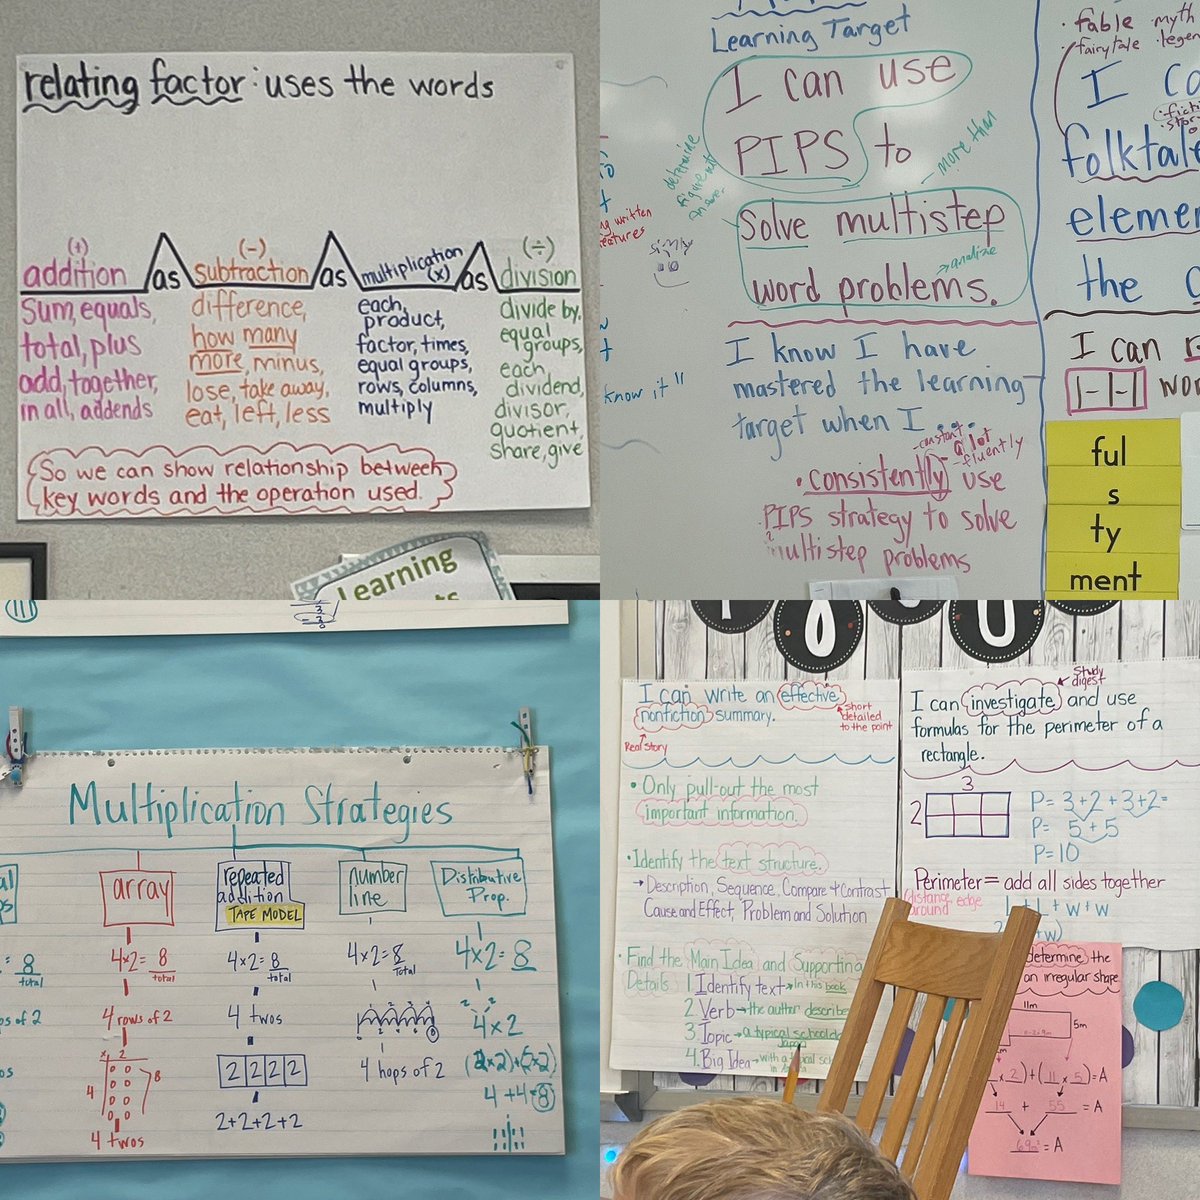 relating factor: uses the words
(+)
addition
as
(-)
subtraction
as
multiplication
(x)
as
(÷)
division
Sum, equals,
total, plus
add, together,
in all, addends
difference,
how many
more, minus,
lose, take away,
eat, left, less
each,
product,
factor, times,
equal groups,
rows, columns,
multiply
divide by,
equal
groups,
each,
dividend,
divisor,
quotient,
share, give
So we can show relationship between
key words and the operation used.
Learning
Learning Target
I can use
PIPS to
determine
figure out
answer
more than
Solve multistep
analize
word problems.
I know I have
mastered the learning
target when I....
constant
a lot
fluently
• consistently use
PIPS strategy to solve
multistep problems
written
features
know it"
• fable • myth
• fairytale
I
folktale
the
I can
|-|-|
ful
s
ty
ment
Multiplication Strategies
array
4x2=8
total
4 rows of 2
x 2
4
8
4 twos
repeated
addition
TAPE MODEL
4x2=8
total
4 twos
2 2 2 2
2+2+2+2
number
line
4x2=8
total
4 hops of 2
Distributive
Prop.
4x2=8
4x2
4+4=8
=8
total
of 2
I can write an effective
nonfiction summary.
short
detailed
to the point
Real Story
• Only pull-out the most
important information.
• Identify the text structure.
→ Description, Sequence, Compare + Contrast
Cause and Effect, Problem and Solution
• Find the Main Idea and Supporting
Details
1. Identify text → In this book
2. Verb → the author describes
3. Topic → a typical school
Japan
4. Big Idea → with a
Study
digest
I can investigate and use
formulas for the perimeter of a
rectangle.
3
2
P= 3+2+3+2=
P= 5+5
P=10
Perimeter= add all sides together
distance edge
around
L + w + w
determine the
an irregular shape
11m
5m
x 2)+(11 x 5)=A
14 + 55 = A
69m² = A